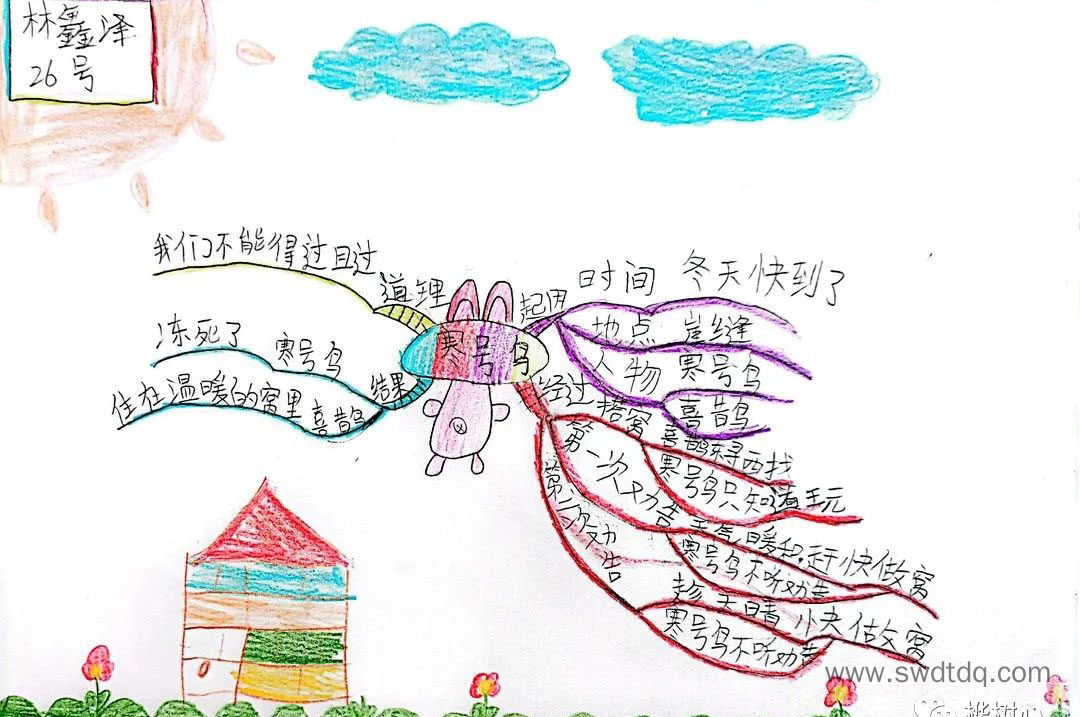 林鑫泽
26号
寒号鸟
起因
时间 冬天快到了
地点 崖缝
人物 寒号鸟
喜鹊
经过
搭窝
喜鹊东寻西找
寒号鸟只知道玩
第一次劝告
天气暖和,赶快做窝
寒号鸟不听劝告
第二次劝告
趁天晴 快做窝
寒号鸟不听劝告
结果
寒号鸟
冻死了
喜鹊
住在温暖的窝里
道理
我们不能得过且过
www.swdtdq.com